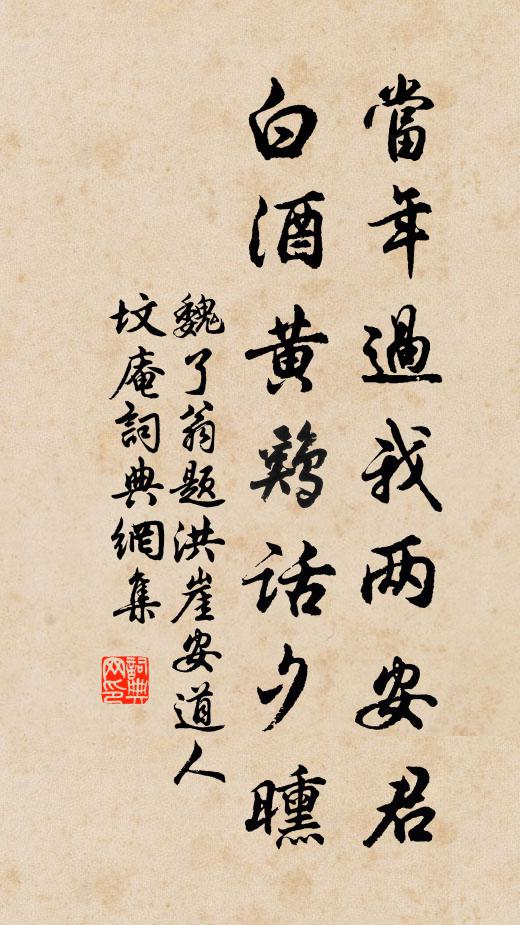 當年過我两安君
白酒黄鷄話夕曛
魏了翁题洪崖安道人
坟庵詞典網集
詞典网印